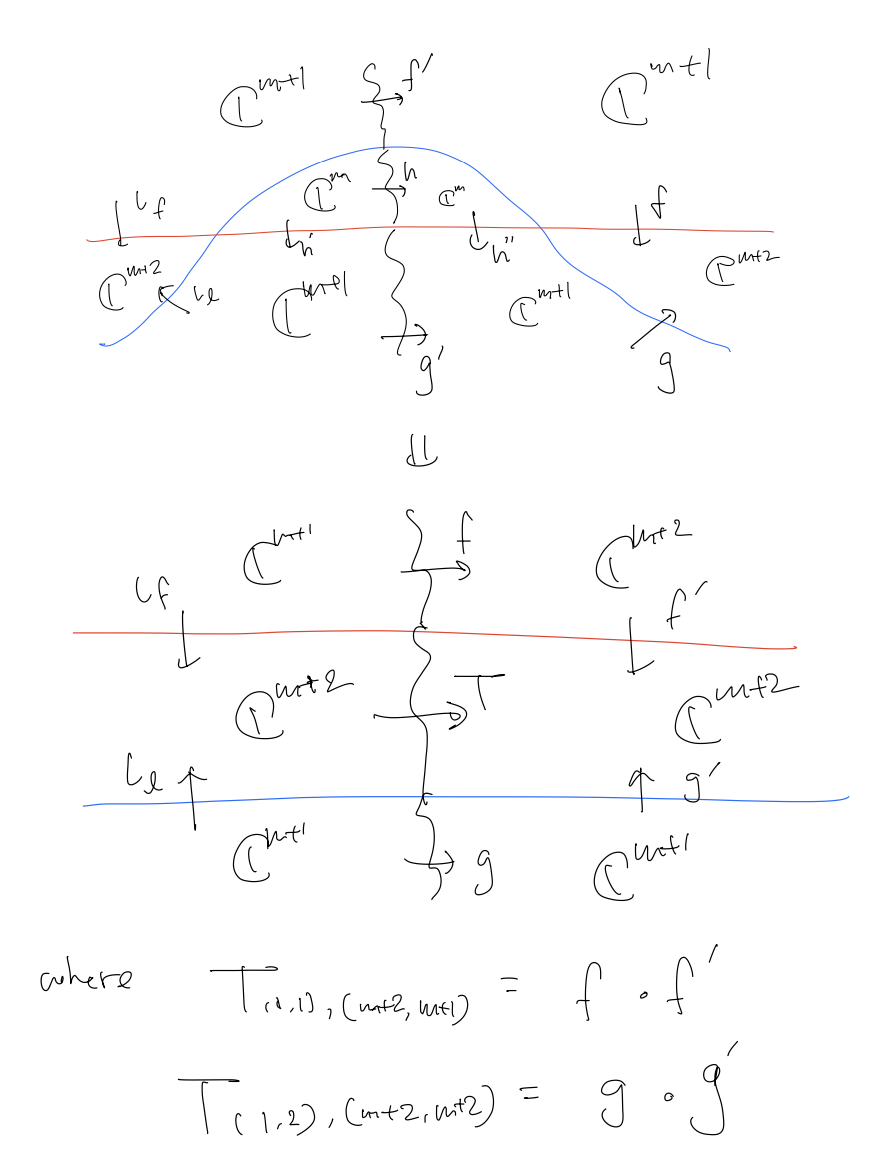 ℂ^{m+1} f′ ℂ^{m+1}
ι_f ℂ^m h ℂ^m f
ℂ^{m+2} ι_ℓ h′ ℂ^{m+1} h″ ℂ^{m+1} ℂ^{m+2}
g′ g
⇓
ℂ^{m+1} f ℂ^{m+2}
ι_f f′
ℂ^{m+2} T ℂ^{m+2}
ι_ℓ g′
ℂ^{m+1} g ℂ^{m+1}
where T_{(1,1),(m+2,m+1)} = f ∘ f′
T_{(1,2),(m+2,m+2)} = g ∘ g′